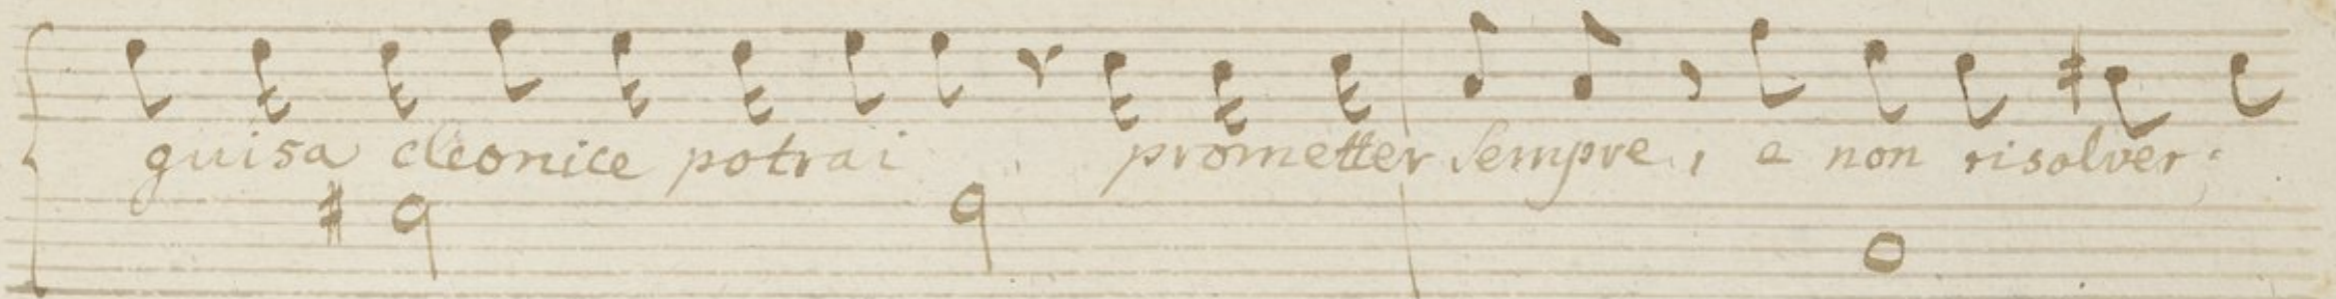 guisa cleonice potrai prometter sempre, e non risolver.